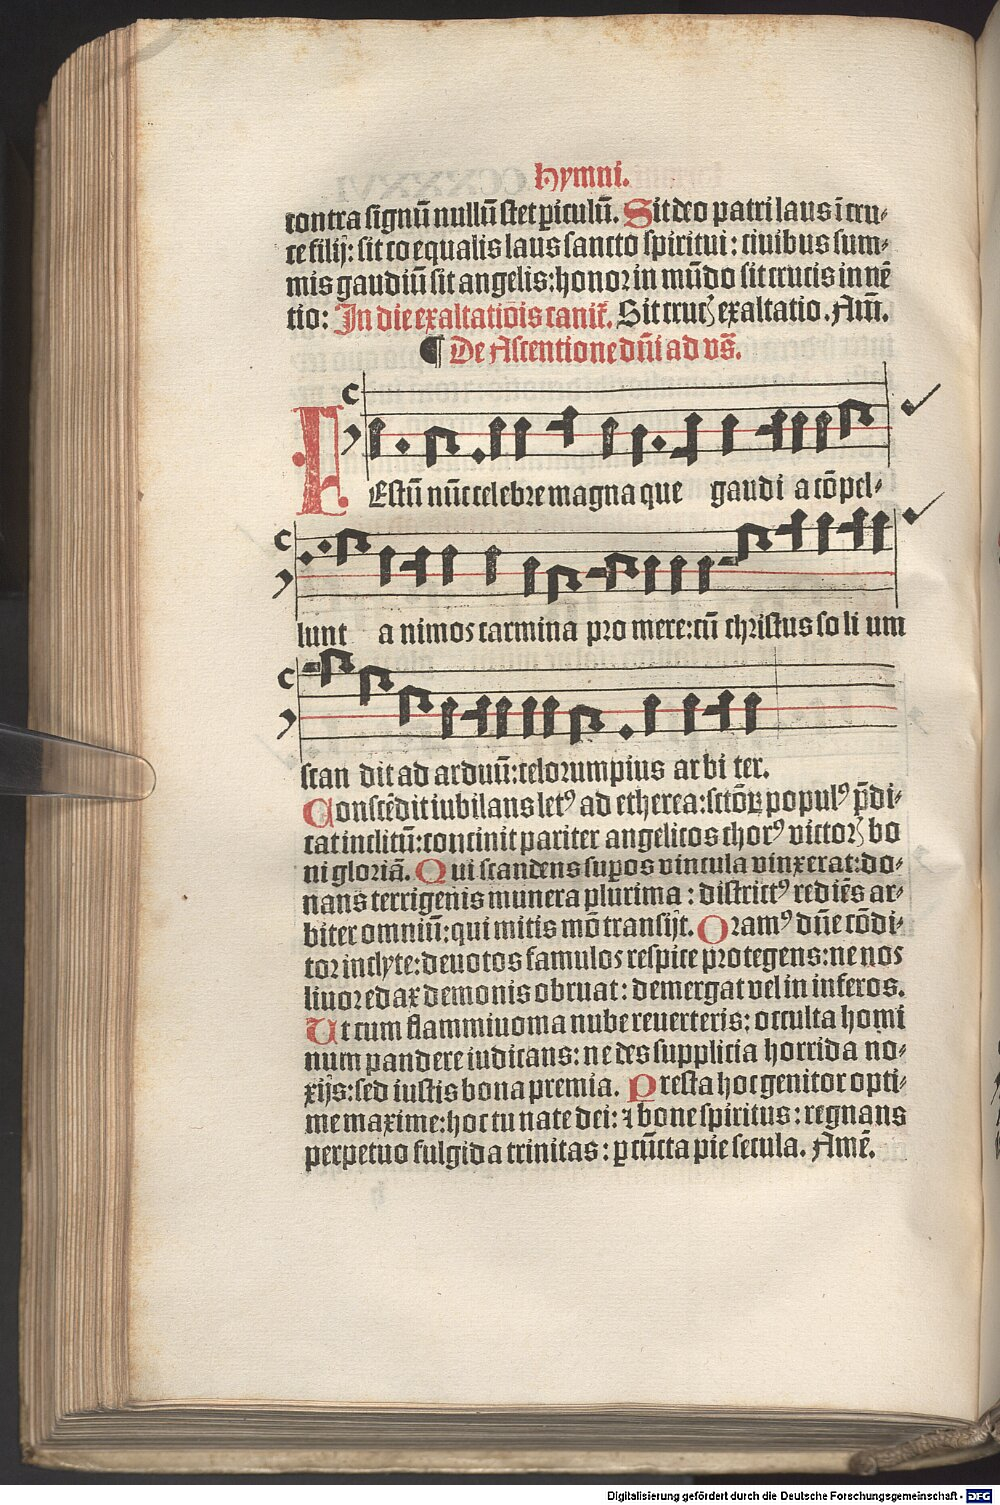 Hymni.
contra signū nullū stet ꝑiculū. Sit deo patri laus ī cru⸗
ce filij: sit coequalis laus sancto spiritui: ciuibus sum⸗
mis gaudiū sit angelis: honoꝛ in mūdo sit crucis inuē
tio: In die exaltatiōis canit̄. Sit crucꝭ exaltatio. Am̄.
¶ De Ascentione dn̄i ad vs̄.
FEstū nūc celebre magna que gaudi a cōpel⸗
lunt a nimos carmina pro mere: cū christus so li um
scan dit ad arduū: celoꝛum pius ar bi ter.
Conscēdit iubilans letꝰ ad etherea: sctōꝝ populꝰ p̄di⸗
cat inclitū: concinit pariter angelicos choꝛꝰ victoꝛꝭ bo
ni gloꝛiā. Qui scandens supos vincula vinxerat: do⸗
nans terrigenis munera plurima: districtꝰ rediēs ar⸗
biter omniū: qui mitis mō transijt. Oꝛamꝰ dn̄e cōdi⸗
toꝛ inclyte: deuotos famulos respice pꝛotegens: ne nos
liuoꝛ edax demonis obruat: demergat vel in inferos.
Ut cum flammiuoma nube reuerteris: occulta homi
num pandere iudicans: ne des supplicia hoꝛrida no⸗
xijs: sed iustis bona premia. Presta hoc genitor opti⸗
me maxime: hoc tu nate dei: ⁊ bone spiritus: regnans
perpetuo fulgida trinitas: ꝑ cūcta pie secula. Amē.
Digitalisierung gefördert durch die Deutsche Forschungsgemeinschaft - DFG